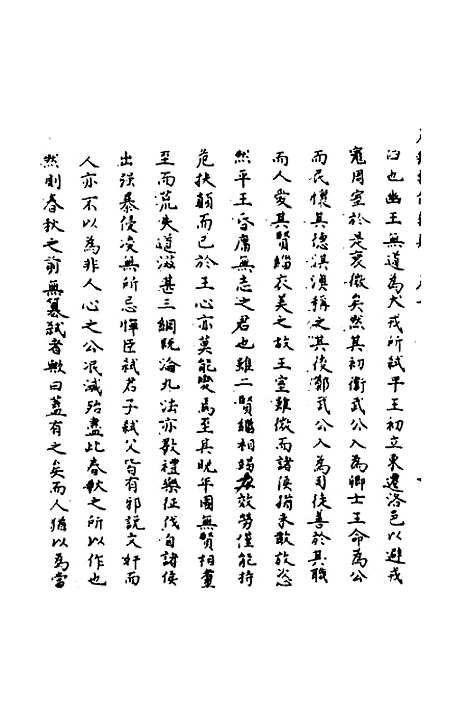 曰也幽王無道為犬戎所弒平王初立東遷洛邑以避戎
寇周室於是衰微矣然其初衛武公入為卿士王命為公
而民懷其德淇澳稱之其後鄭武公入為司徒善於其職
而人愛其賢緇衣美之故王室雖微而諸侯猶未敢放恣
然平王昏庸無志之君也雖二賢繼相竭效勞僅能持
危扶顛而已於王心亦莫能變焉至其晚年國無賢相薰
至而荒失道滋甚三綱既淪九法亦斁禮樂征伐自諸侯
出强暴侵凌無所忌憚臣弒君子弒父皆有邪說文奸而
人亦不以為非人心之公泯滅殆盡此春秋之所以作也
然則春秋之前無簒弒者歟曰蓋有之矣而人猶以為當